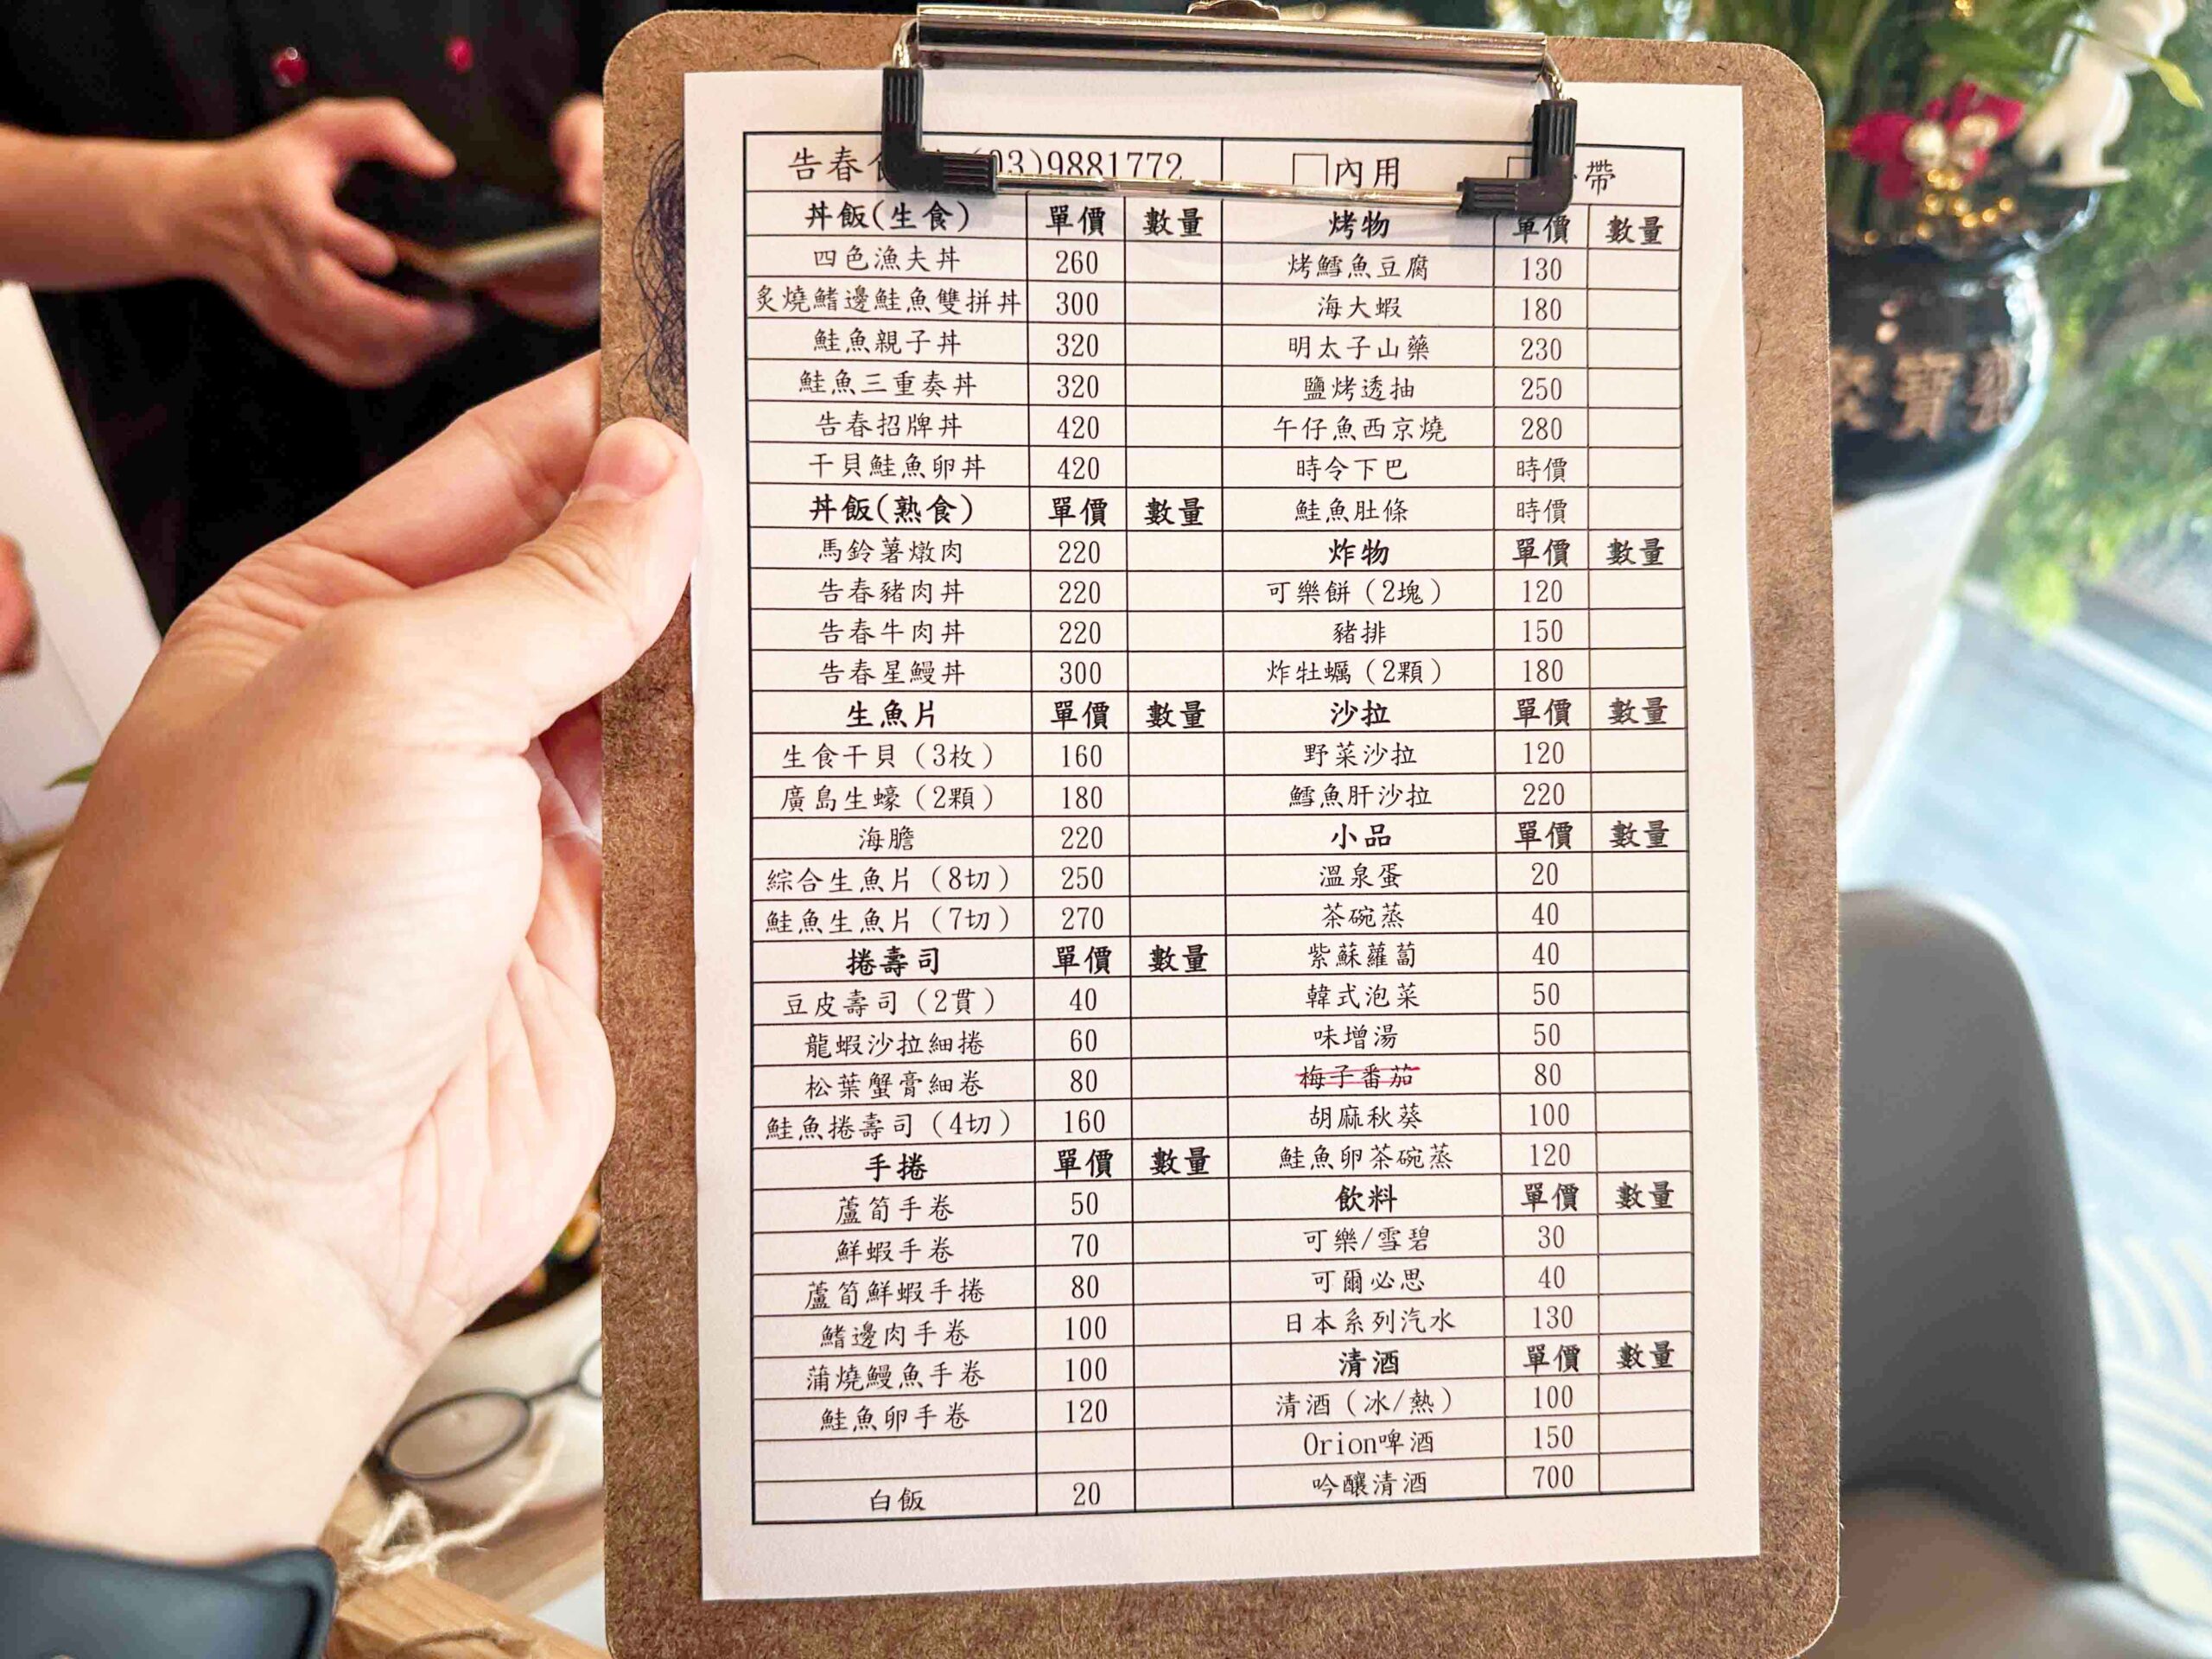 告春 (03)9881772 □內用 帶
丼飯(生食) 單價 數量 烤物 單價 數量
四色漁夫丼 260 烤鱈魚豆腐 130
炙燒鰭邊鮭魚雙拼丼 300 海大蝦 180
鮭魚親子丼 320 明太子山藥 230
鮭魚三重奏丼 320 鹽烤透抽 250
告春招牌丼 420 午仔魚西京燒 280
干貝鮭魚卵丼 420 時令下巴 時價
丼飯(熟食) 單價 數量 鮭魚肚條 時價
馬鈴薯燉肉 220 炸物 單價 數量
告春豬肉丼 220 可樂餅（2塊） 120
告春牛肉丼 220 豬排 150
告春星鰻丼 300 炸牡蠣（2顆） 180
生魚片 單價 數量 沙拉 單價 數量
生食干貝（3枚） 160 野菜沙拉 120
廣島生蠔（2顆） 180 鱈魚肝沙拉 220
海膽 220 小品 單價 數量
綜合生魚片（8切） 250 溫泉蛋 20
鮭魚生魚片（7切） 270 茶碗蒸 40
捲壽司 單價 數量 紫蘇蘿蔔 40
豆皮壽司（2貫） 40 韓式泡菜 50
龍蝦沙拉細捲 60 味增湯 50
松葉蟹膏細卷 80 梅子番茄 80
鮭魚捲壽司（4切） 160 胡麻秋葵 100
手捲 單價 數量 鮭魚卵茶碗蒸 120
蘆筍手卷 50 飲料 單價 數量
鮮蝦手卷 70 可樂/雪碧 30
蘆筍鮮蝦手捲 80 可爾必思 40
鰭邊肉手卷 100 日本系列汽水 130
蒲燒鰻魚手卷 100 清酒 單價 數量
鮭魚卵手卷 120 清酒（冰/熱） 100
Orion啤酒 150
白飯 20 吟釀清酒 700
寶